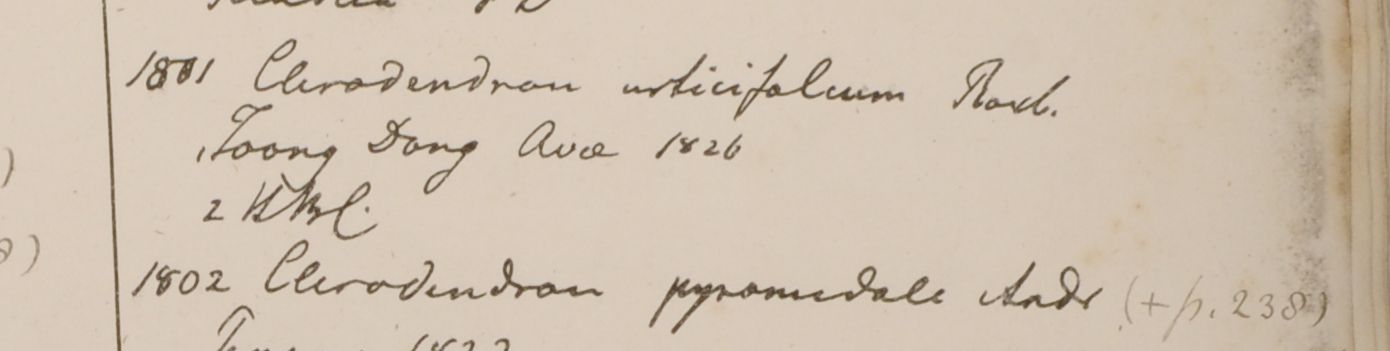 1801 Clerodendron urticifolium Roxb.
Toong Dong Ava 1826
2 HBC.
1802 Clerodendron pyramidale Andr (+ p. 238)
8)